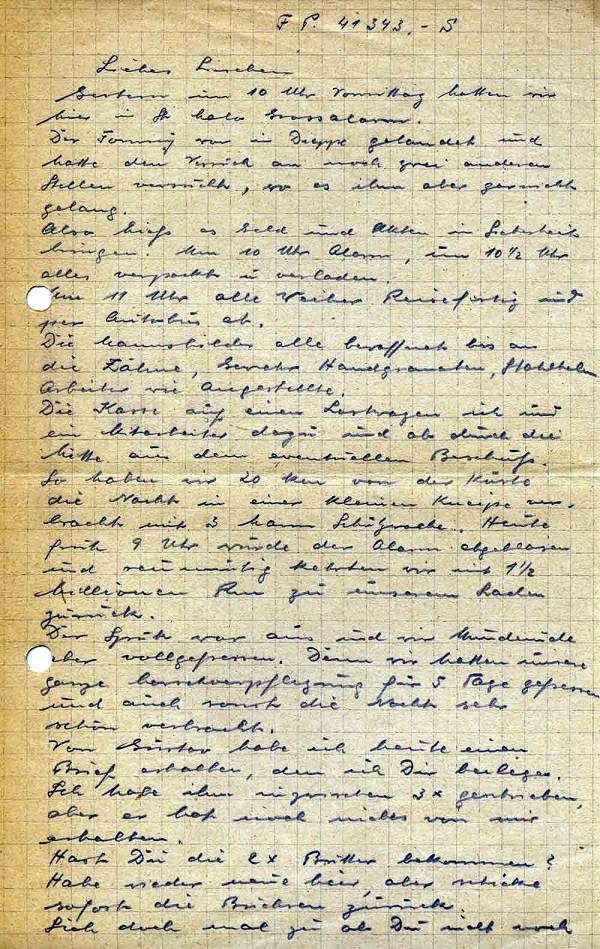 F P. 41343.-S
Liebes Lieschen
Gestern um 10 Uhr Vormittag hatten wir
hier in St Malo Grossalarm.
Der Tommy war in Dieppe gelandet und
hatte den Versuch an noch zwei anderen
Stellen versucht, wo es ihm aber garnicht
gelang.
Also hiess es Geld und Akten in Sicherheit
bringen. Um 10 Uhr Alarm, um 10½ Uhr
alles verpackt u verladen.
Um 11 Uhr alle Weiber Reisefertig und
per Autobus ab.
Die Mannsbilder alle bewaffnet bis an
die Zähne, Gewehr Handgranaten, Stahlhelm
Arbeiter wie Angestellte.
Die Kasse auf einen Lastwagen ich und
ein Mitarbeiter dazu und ab durch die
Mitte aus dem eventuellen Beschuss.
So haben wir 20 km von der Küste
die Nacht in einer kleinen Kneipe ver-
bracht mit 3 Mann Schutzwache. Heute
früh 9 Uhr wurde der Alarm abgeblasen
und reumütig kehrten wir mit 1½
Millionen Rm zu unserem Laden
zurück.
Der Spuk war aus und wir
aber vollgefressen. Denn wir hatten unsere
ganze Marschverpflegung für 5 Tage gefressen
und auch sonst die Nacht sehr
schön verbracht.
Von Gustav habe ich heute einen
Brief erhalten, den ich Dir beilege.
Ich habe ihm inzwischen 3x geschrieben,
aber er hat noch nichts von mir
erhalten.
Hast Du die 2x Butter bekommen?
Habe wieder neue hier, aber schicke
sofort die Büchsen zurück.
Sieh doch mal zu ob Du nicht noch